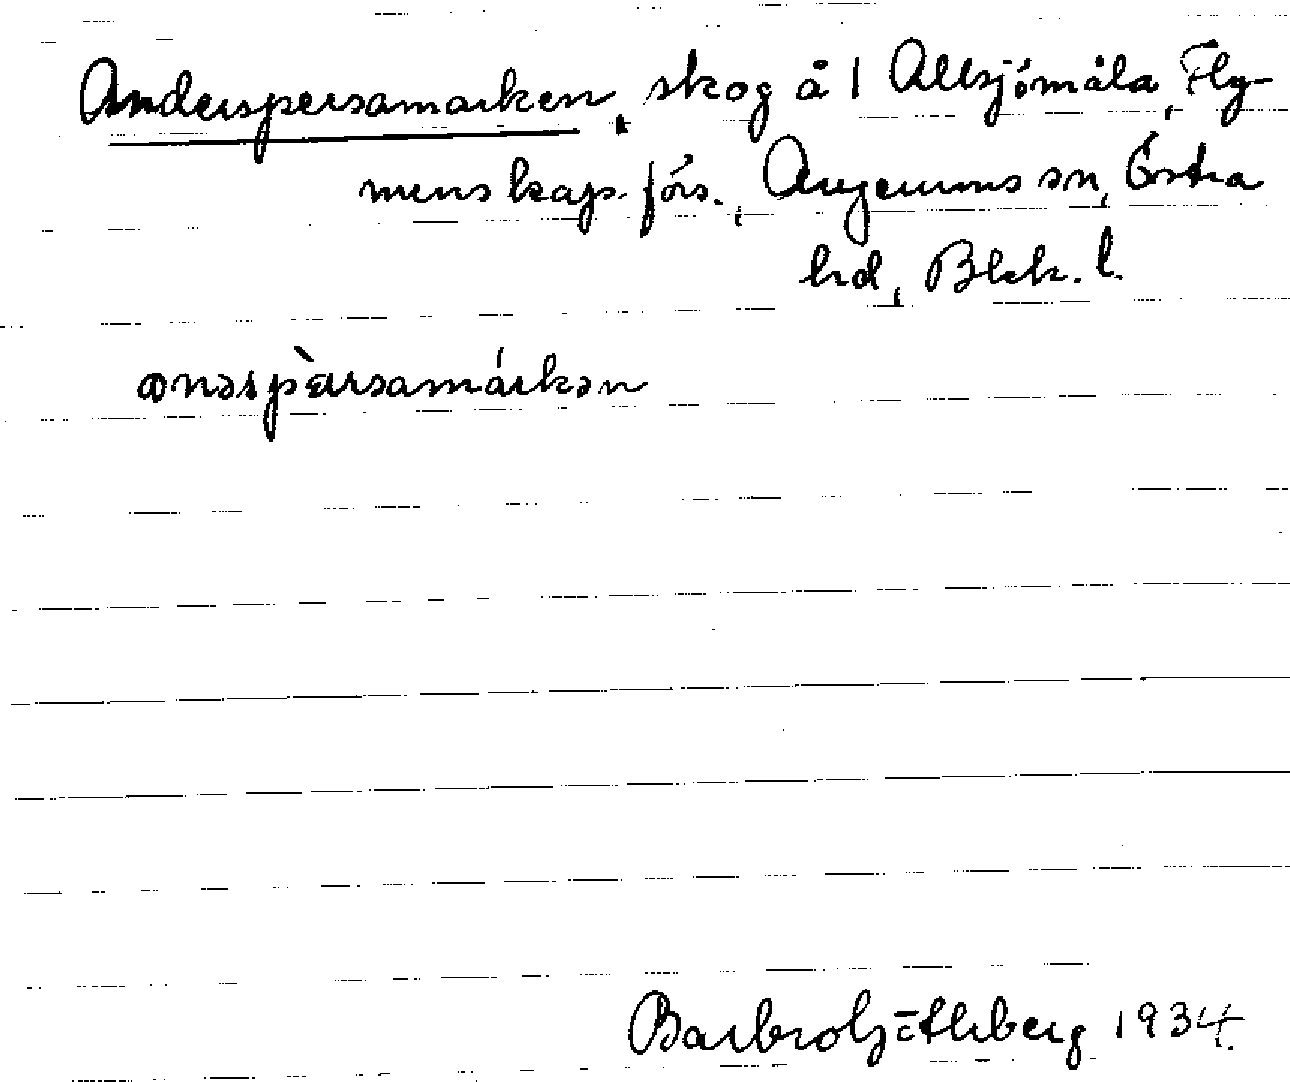 Anderspersamarken, skog å 1 Allsjömåla, Fly-
mens kap. förs., Augerums sn, Östra
hd, Blek. l.
anəspæ̀rsamárkən
Barbro 1934.